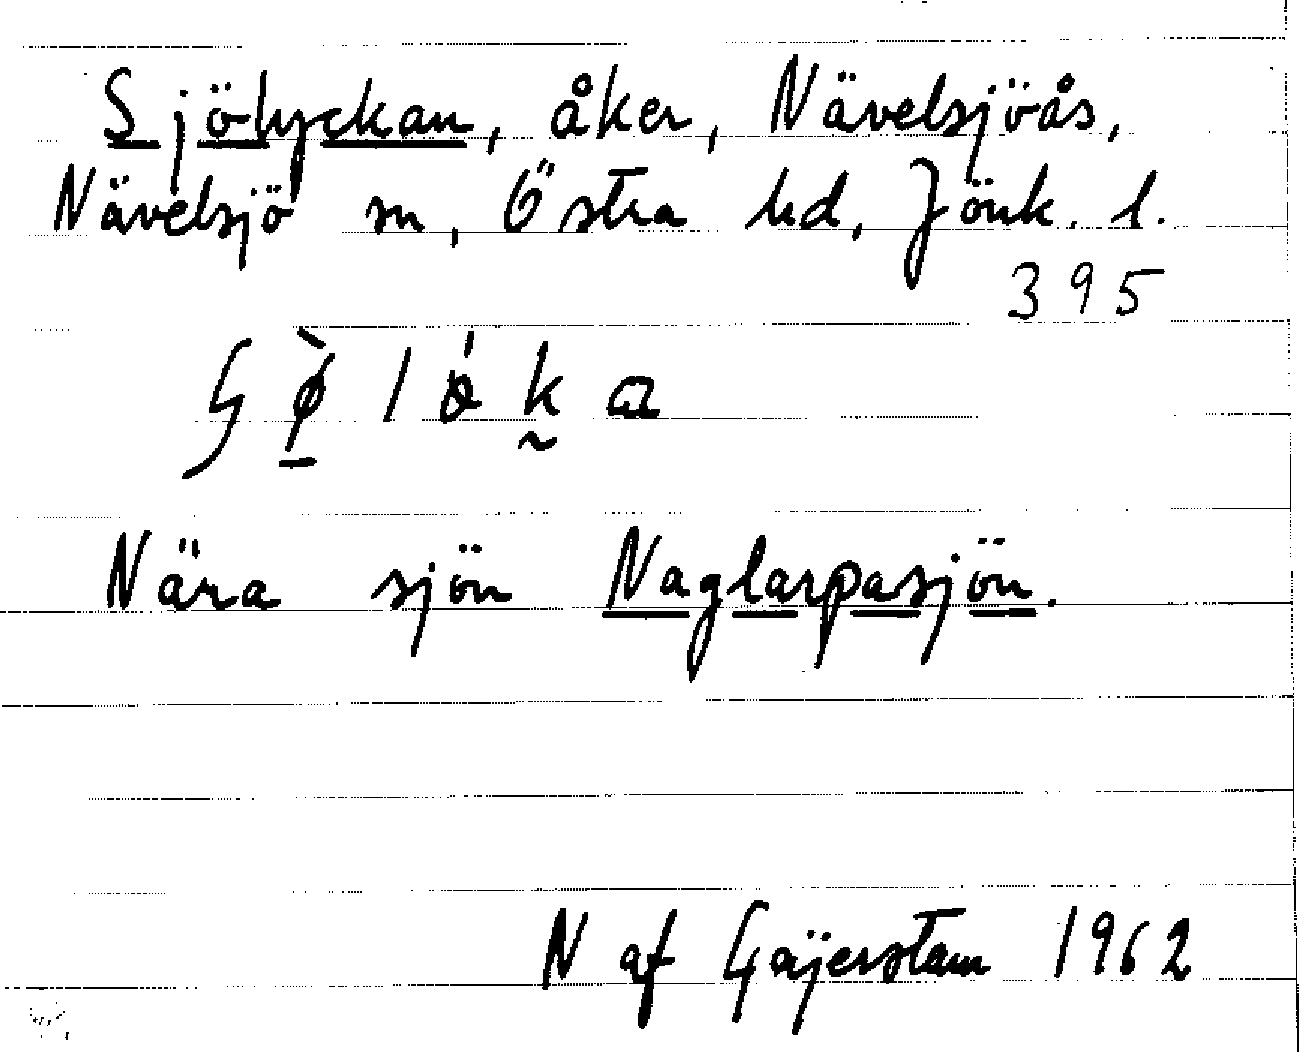 Sjölyckan, åker, Nävelsjöås,
Nävelsjö sn, Östra hd, Jönk. l.
395
Nära sjön Naglarpasjön.
N af Gäijerstam 1962